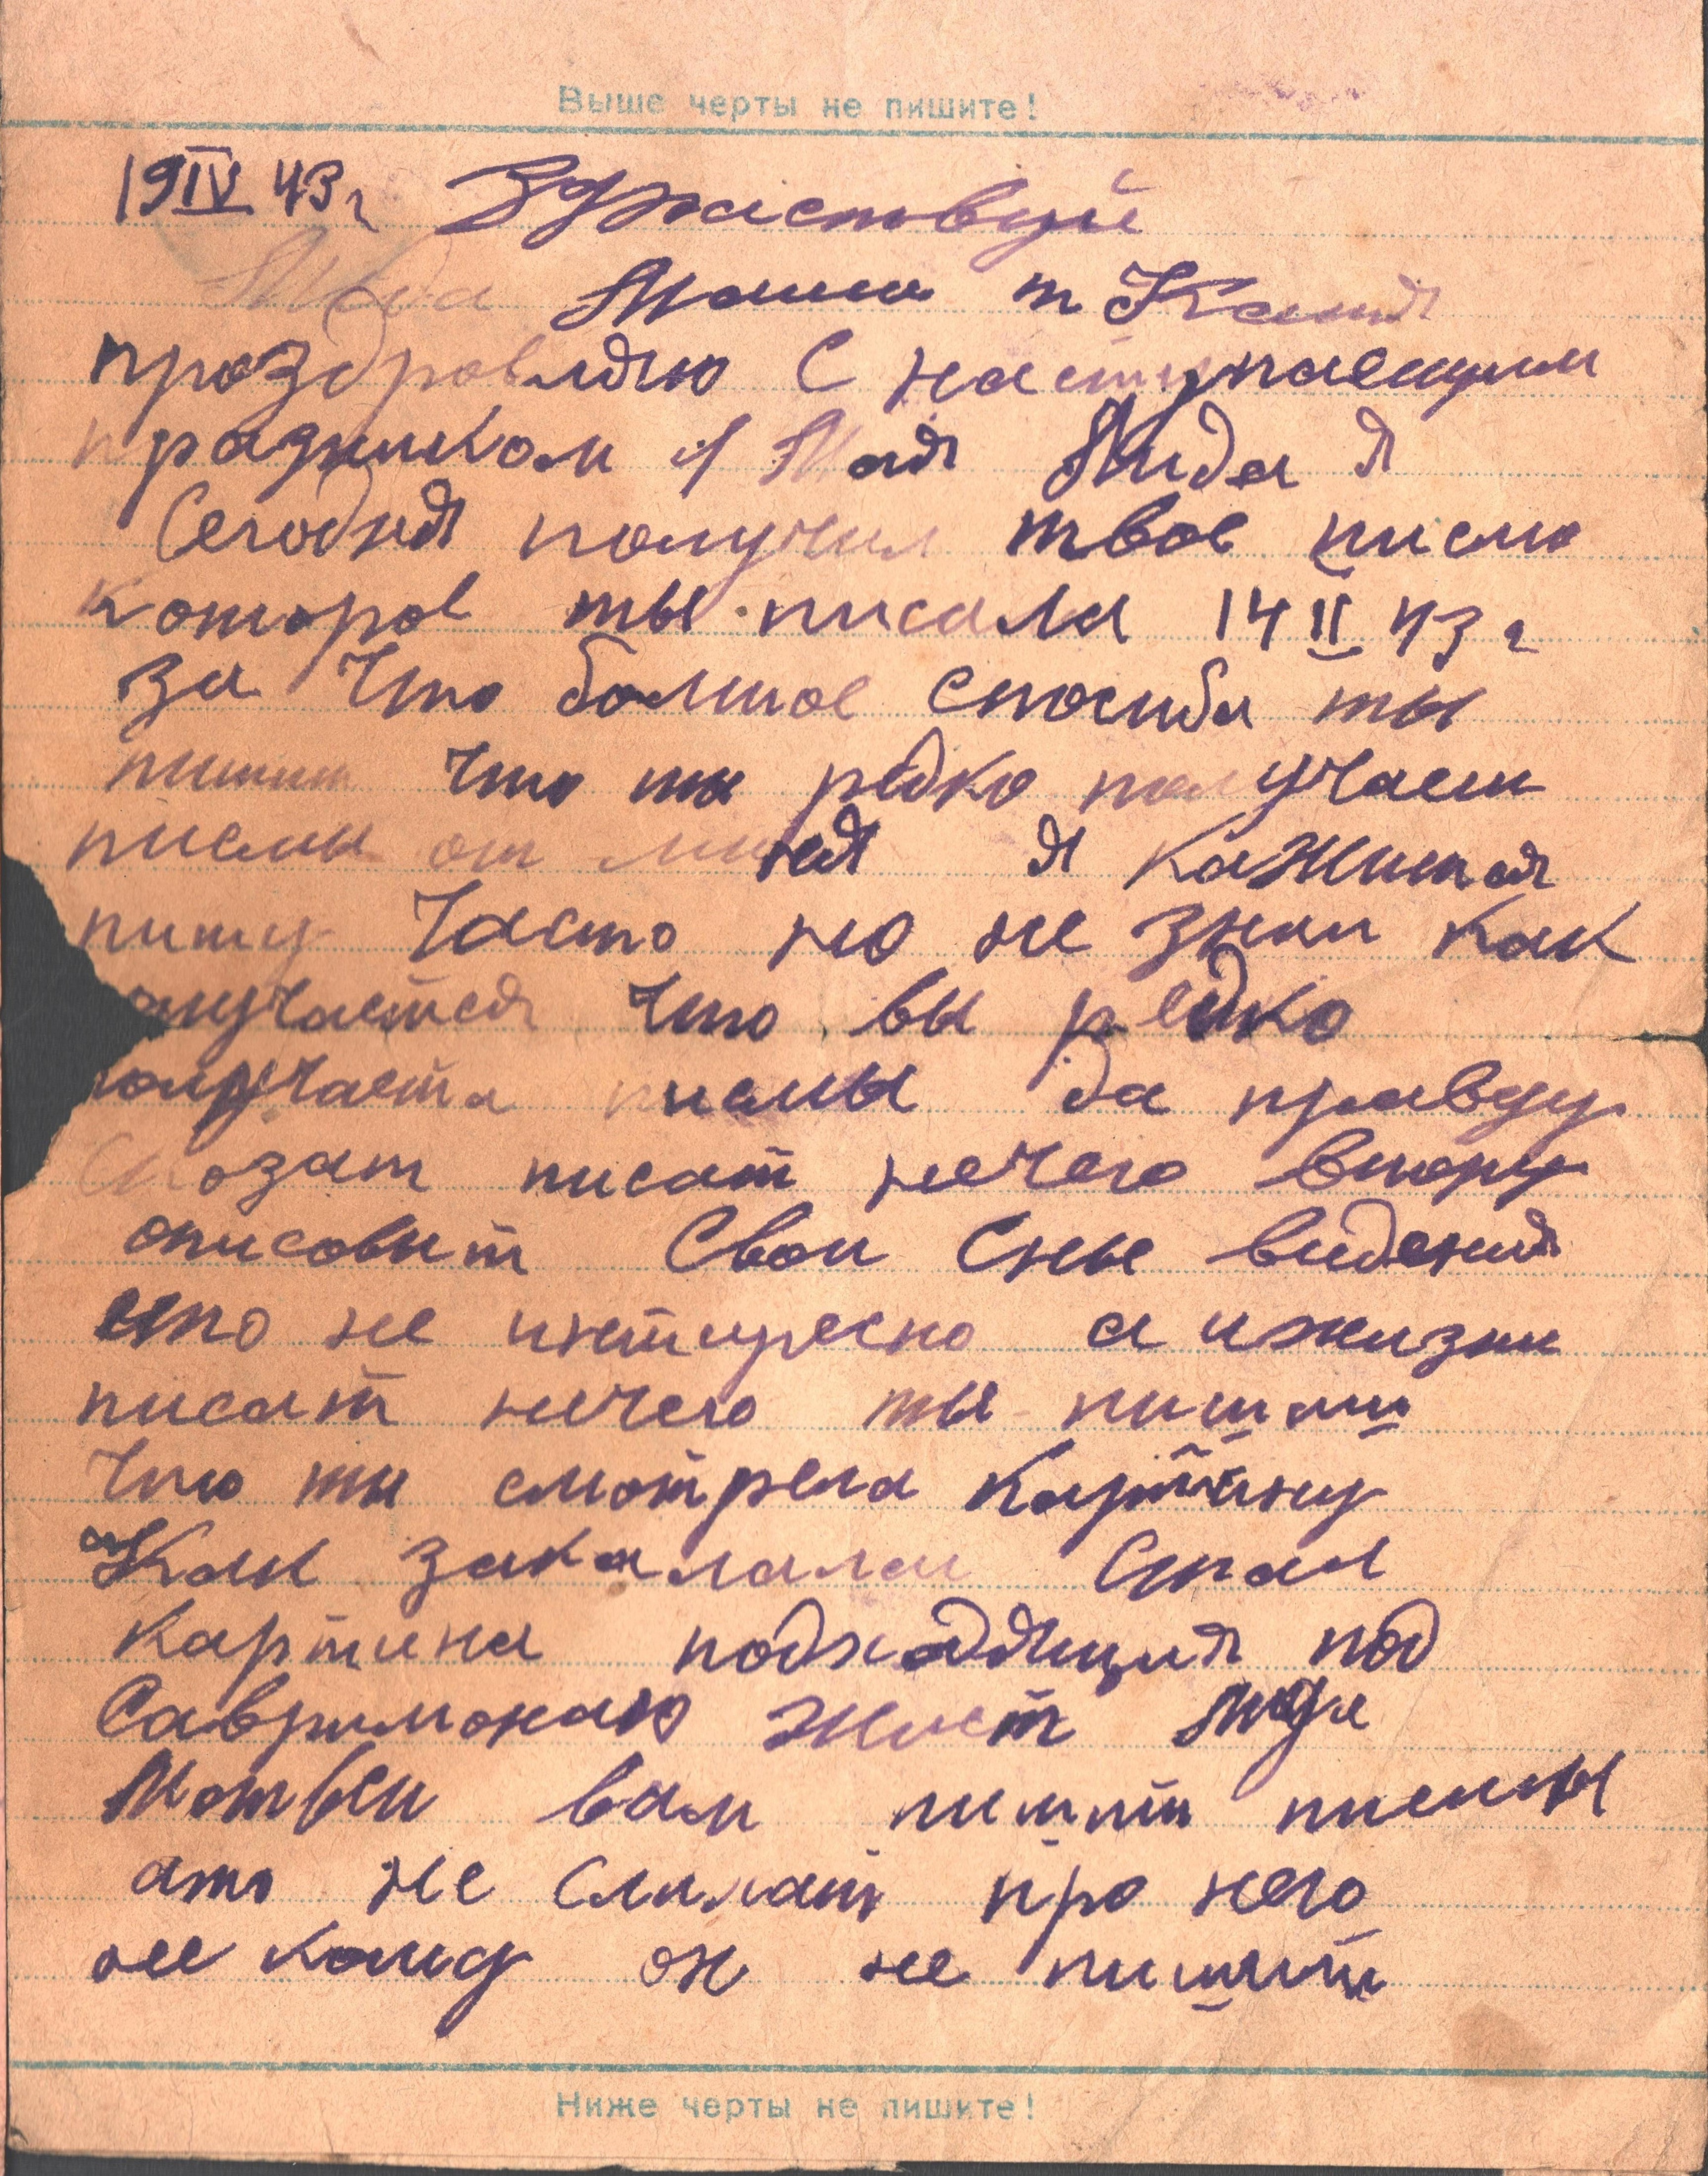 Выше черты не пишите!
19 IV 43 г Здраствуй
Мама т Капа
проздровляю С наступаещим
празником 1 Мая Лида я
Сегодня получил твое писмо
которое ты писала 14 II 43 г
за что болшое спосиба ты
пишиш что ты редко получаеш
писмы от миня я кажится
пишу часто но не знаю как
олучается что вы редко
получаета писмы да правду
сказат писат нечего впору
описоват Свои Сны видения
ето не интиресно а ижизни
писат нечего ты пишиш
что ты смотрела картину
Как закалалас Стал
картина подхадящия под
Савримоную жист Лида
Мотвеи вам пишит писмы
ато не слыхат про него
не кому он не пишит
Ниже черты не пишите!